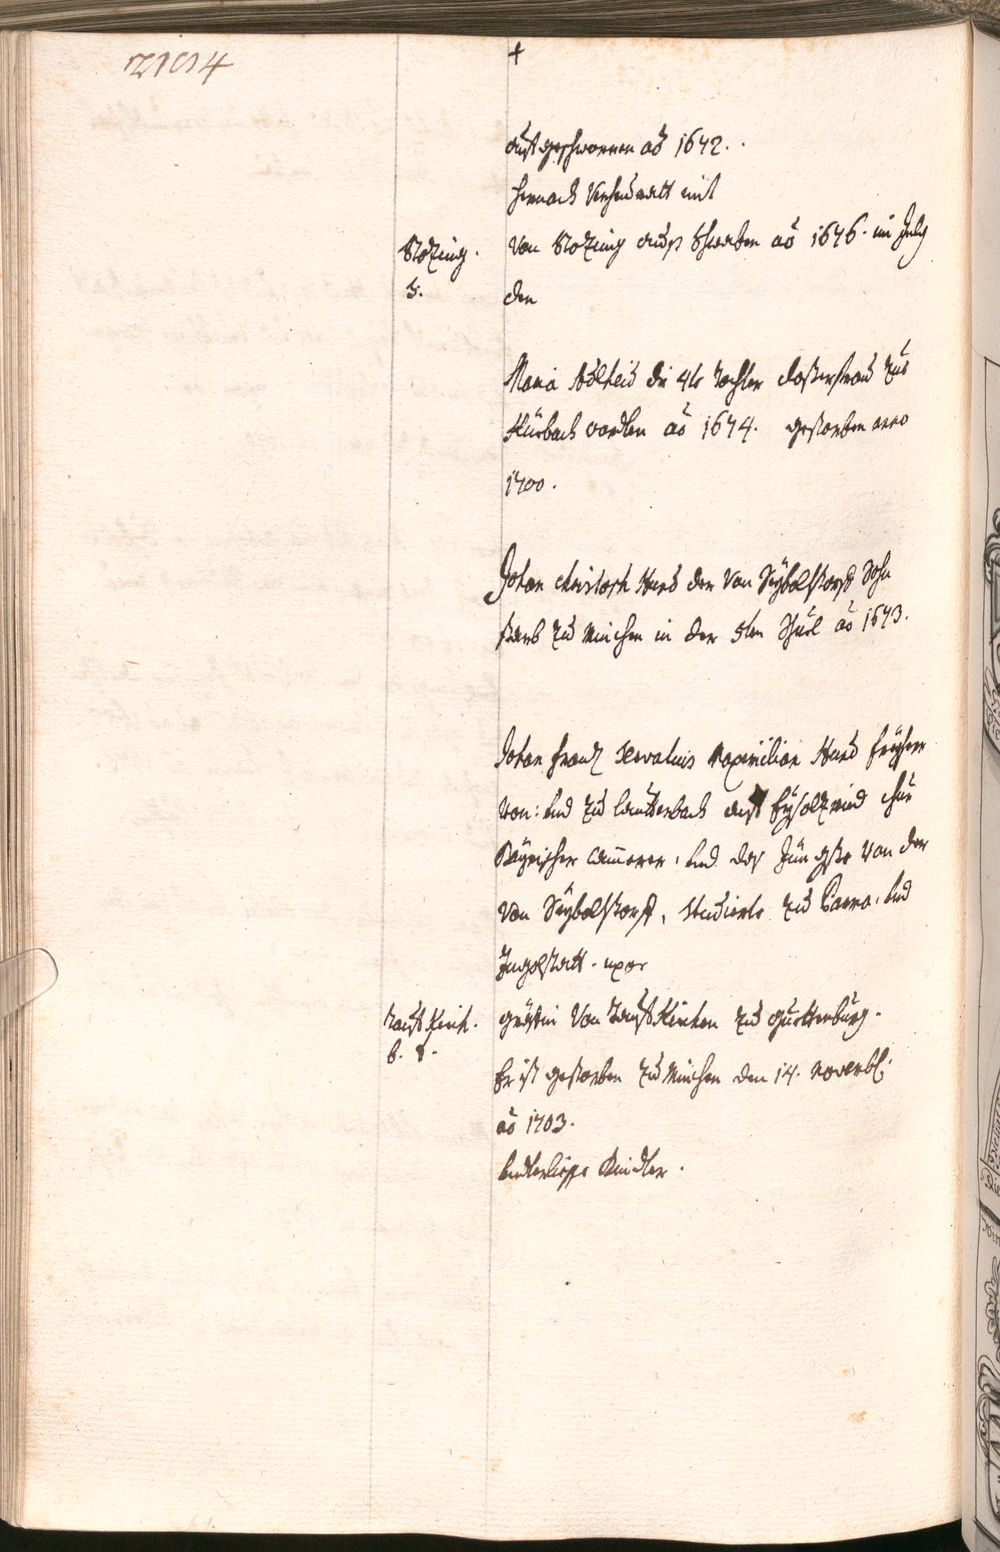 2194
+
aufgeschworen aõ 1672.
hernach Verheurath mit
Stozing.
3.
Von Stozing auß Schwaben aõ 1676. im July
den
Maria Adelheid die 4te tochter Closterfrau zue
Kürbach worden aõ 1674. gestorben anno
1700.
Johan Christoph Hund der Von Seyboltstorff Sohn
starb zu Minchen in der 5ten Schuel aõ 1673.
Johan Franz Maximilian Hund Freyherr
Von: und zu Lautterbach auf Eysoltzried Chur
Bayrischer Camerer, und der Jüngste Von der
Von Seyboltstorff, studierte zu Parma, und
Ingolstatt. uxor
Taufkirch.
b. 8.
gräfin Von Taufkirchen zu guettenburg.
Er ist gestorben zu Minchen den 14. Novemb:
aõ 1703.
hinderliesse Kindter.